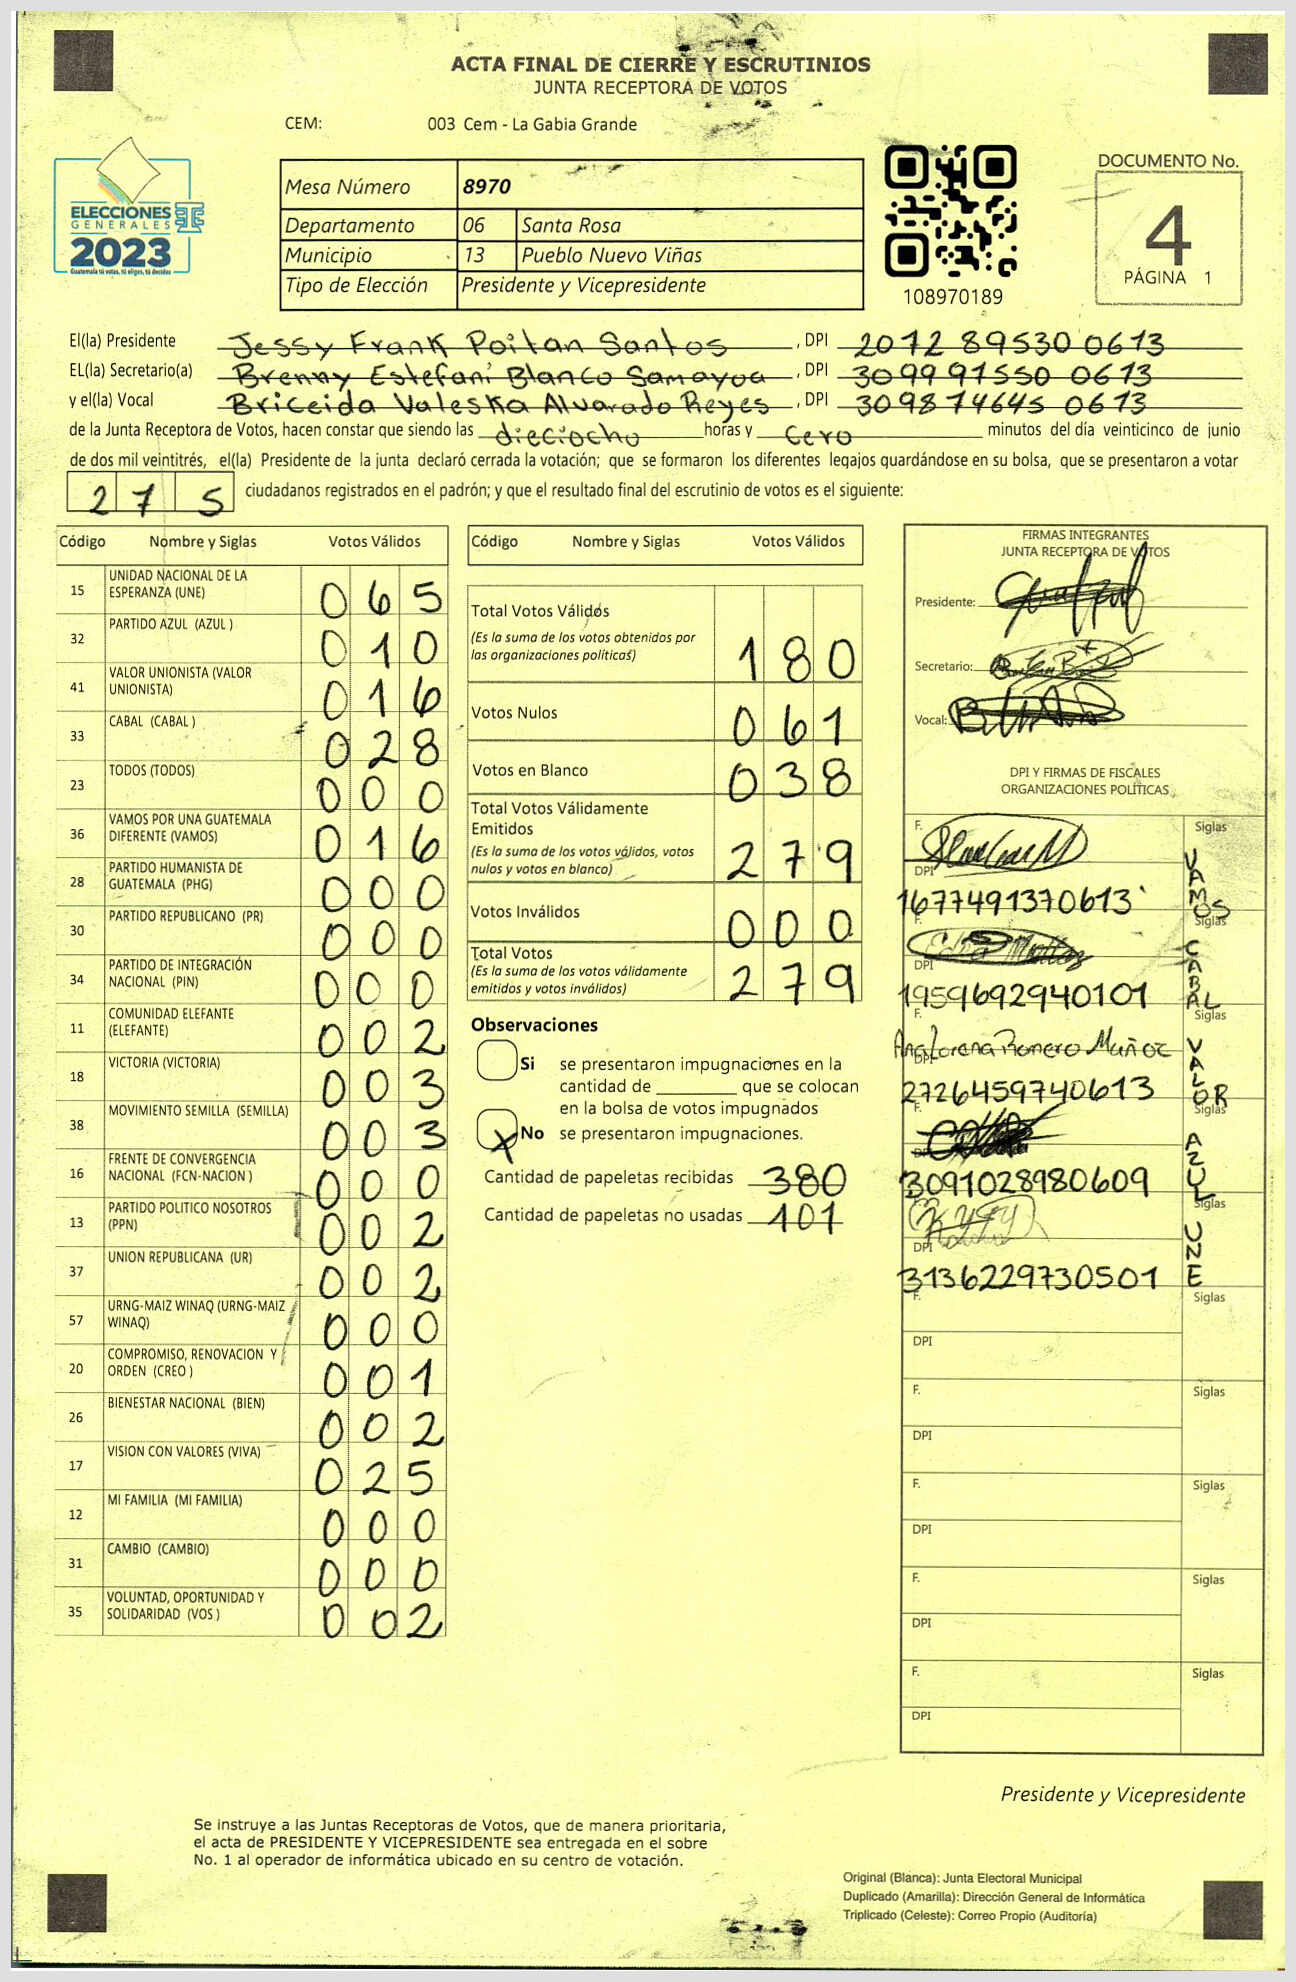 ACTA FINAL DE CIERRE Y ESCRUTINIOS
JUNTA RECEPTORA DE VOTOS
CEM: 003 Cem - La Gabia Grande
ELECCIONES
GENERALES
2023
Guatemala tú votas, tú eliges, tú decides
Mesa Número 8970
Departamento 06 Santa Rosa
Municipio 13 Pueblo Nuevo Viñas
Tipo de Elección Presidente y Vicepresidente
108970189
DOCUMENTO No.
4
PÁGINA 1
El(la) Presidente Jessy Frank Poitan Santos, DPI 2072 89530 0613
EL(la) Secretario(a) Brenny Estefani Blanco Samayoa, DPI 309991550 0613
y el(la) Vocal Briceida Valeska Alvarado Reyes, DPI 309874645 0613
de la Junta Receptora de Votos, hacen constar que siendo las dieciocho horas y Cero minutos del día veinticinco de junio
de dos mil veintitrés, el(la) Presidente de la junta declaró cerrada la votación; que se formaron los diferentes legajos quardándose en su bolsa, que se presentaron a votar
275 ciudadanos registrados en el padrón; y que el resultado final del escrutinio de votos es el siguiente:
Código Nombre y Siglas Votos Válidos
15 UNIDAD NACIONAL DE LA ESPERANZA (UNE) 065
32 PARTIDO AZUL (AZUL ) 010
41 VALOR UNIONISTA (VALOR UNIONISTA) 016
33 CABAL (CABAL ) 028
23 TODOS (TODOS) 000
36 VAMOS POR UNA GUATEMALA DIFERENTE (VAMOS) 016
28 PARTIDO HUMANISTA DE GUATEMALA (PHG) 000
30 PARTIDO REPUBLICANO (PR) 000
34 PARTIDO DE INTEGRACIÓN NACIONAL (PIN) 000
11 COMUNIDAD ELEFANTE (ELEFANTE) 002
18 VICTORIA (VICTORIA) 003
38 MOVIMIENTO SEMILLA (SEMILLA) 003
16 FRENTE DE CONVERGENCIA NACIONAL (FCN-NACION ) 000
13 PARTIDO POLITICO NOSOTROS (PPN) 002
37 UNION REPUBLICANA (UR) 002
57 URNG-MAIZ WINAQ (URNG-MAIZ WINAQ) 000
20 COMPROMISO, RENOVACION Y ORDEN (CREO ) 001
26 BIENESTAR NACIONAL (BIEN) 002
17 VISION CON VALORES (VIVA) 025
12 MI FAMILIA (MI FAMILIA) 000
31 CAMBIO (CAMBIO) 000
35 VOLUNTAD, OPORTUNIDAD Y SOLIDARIDAD (VOS ) 002
Código Nombre y Siglas Votos Válidos
Total Votos Válidos 180
(Es la suma de los votos obtenidos por
las organizaciones políticas)
Votos Nulos 061
Votos en Blanco 038
Total Votos Válidamente
Emitidos 279
(Es la suma de los votos válidos, votos
nulos y votos en blanco)
Votos Inválidos 000
Total Votos 279
(Es la suma de los votos válidamente
emitidos y votos inválidos)
Observaciones
Si se presentaron impugnaciones en la
cantidad de ________ que se colocan
en la bolsa de votos impugnados
X No se presentaron impugnaciones.
Cantidad de papeletas recibidas 380
Cantidad de papeletas no usadas 101
FIRMAS INTEGRANTES
JUNTA RECEPTORA DE VOTOS
Presidente:
Secretario:
Vocal:
DPI Y FIRMAS DE FISCALES
ORGANIZACIONES POLÍTICAS
F. Siglas VAMOS
DPI 1677491370613
F. Siglas CABAL
DPI 1959692940101
F. Ana Lorena Romero Muñoz Siglas VALOR
DPI 2726459740613
F. Siglas AZUL
DPI 3091028980609
F. Siglas UNE
DPI 3136229730501
F. Siglas
DPI
F. Siglas
DPI
F. Siglas
DPI
F. Siglas
DPI
F. Siglas
DPI
Presidente y Vicepresidente
Se instruye a las Juntas Receptoras de Votos, que de manera prioritaria,
el acta de PRESIDENTE Y VICEPRESIDENTE sea entregada en el sobre
No. 1 al operador de informática ubicado en su centro de votación.
Original (Blanca): Junta Electoral Municipal
Duplicado (Amarilla): Dirección General de Informática
Triplicado (Celeste): Correo Propio (Auditoría)